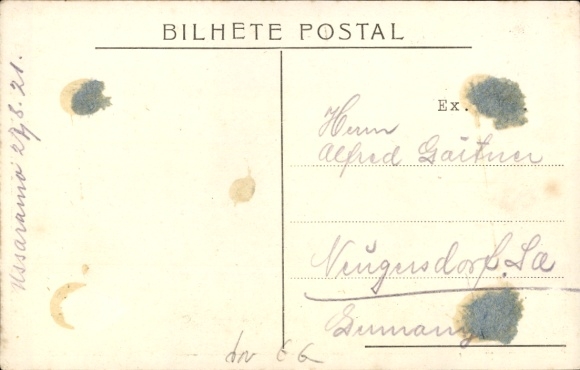 BILHETE POSTAL
Ussaramo 27/8.21.
Ex.
Herrn
Alfred Gäitner
Neugersdorf. Sa
Germany.